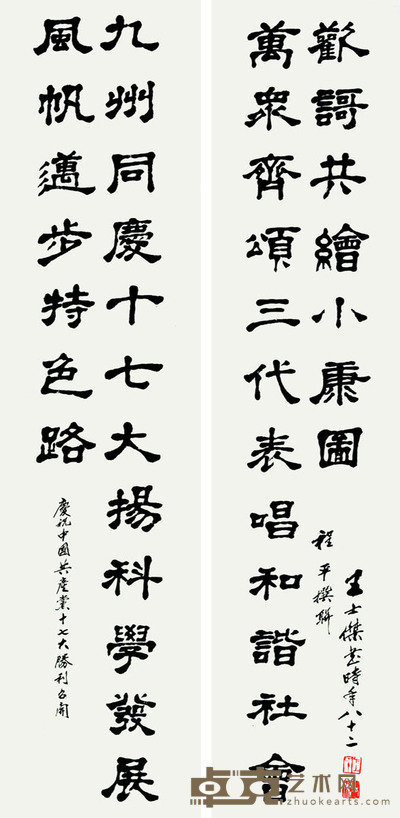 九州同慶十七大揚科學發展
風帆邁步特色路
慶祝中國共產黨十七大勝利召開
萬眾齊頌三代表唱和諧社會
歡謌共繪小康圖
程平撰聯
王士傑書時年八十二
艺术网
zhuokearts.com